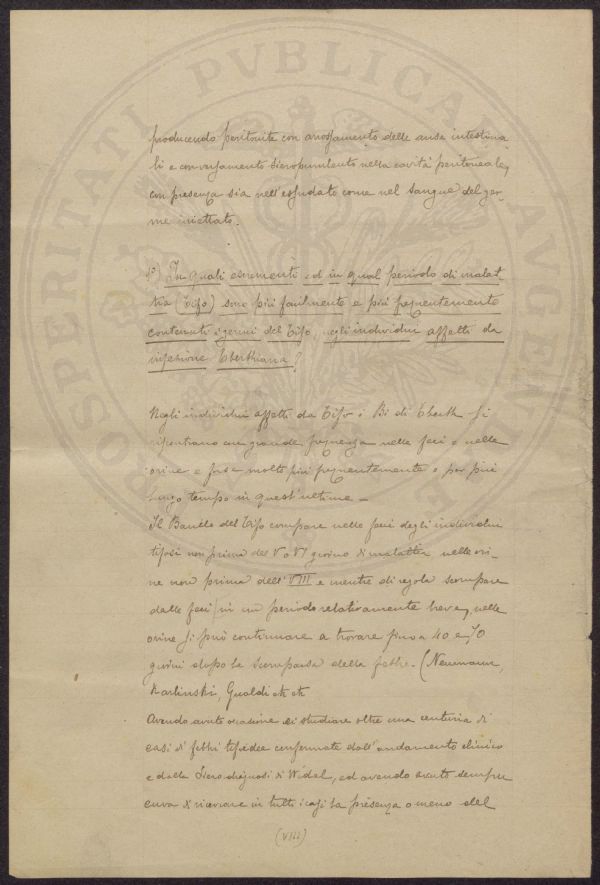 producendo peritonite con arrossamento delle anse intestina
li e con versamento sieropurulento nella cavità peritoneale,
con presenza sia nell'essudato come nel sangue del ger-
me iniettato.
In quali escrementi ed in qual periodo di malat
tia (Tifo) sono più facilmente e più frequentemente
contenuti i germi del Tifo, negli individui affetti da
infezione Eberthiana?
Negli individui affetti da Tifo i Bi di Eberth si
riscontrano con grande frequenza nelle feci e nelle
orine e forse molto più frequentemente e per più
lungo tempo in quest'ultime –
Il Bacillo del Tifo compare nelle feci degli individui
tifosi non prima del V o VI giorno di malattia nelle ori-
ne non prima dell'VIII e mentre di regola scompare
dalle feci in un periodo relativamente breve, nelle
orine si può continuare a trovare fino a 40 e 70
giorni dopo la scomparsa della febbre. (Neumann,
Karlinski, Gualdi
Avendo avuto occasione di studiare oltre una centuria di
casi di febbri tifoidee confermate dall'andamento clinico
e dalla Siero diagnosi di Widal, ed avendo avuto sempre
cura di ricercare in tutti i casi la presenza o meno del
(VIII)
PROSPERITATI PVBLICAE AVGENDAE